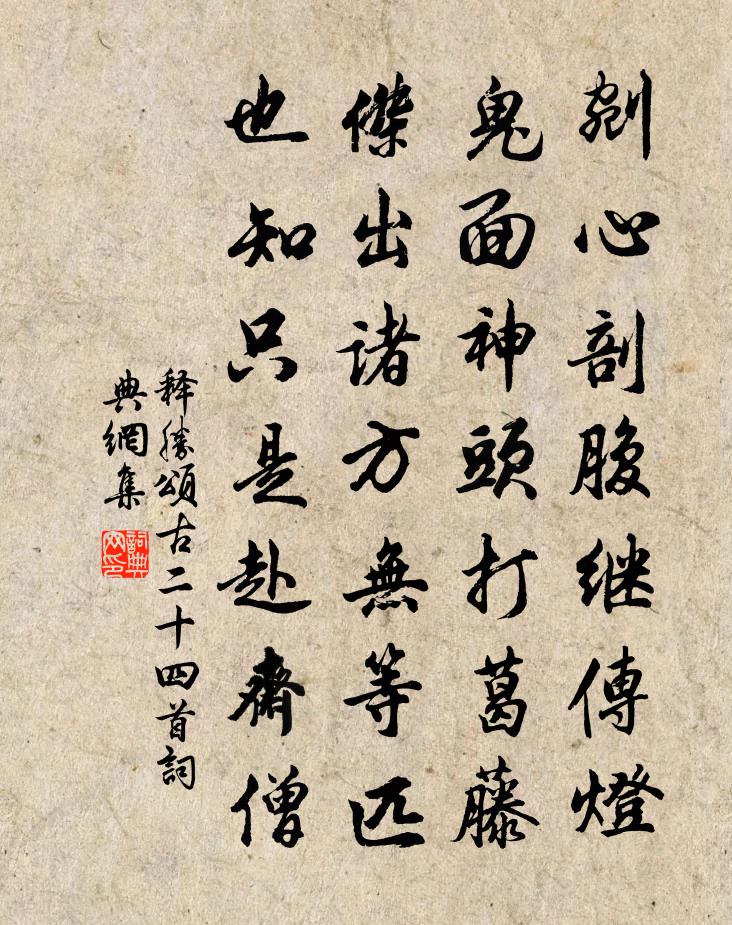 剜心剖腹继傳燈
鬼面神頭打葛藤
傑出诸方無等匹
也知只是赴齋僧
释勝頌古二十四首詞
典網集
詞典
网印